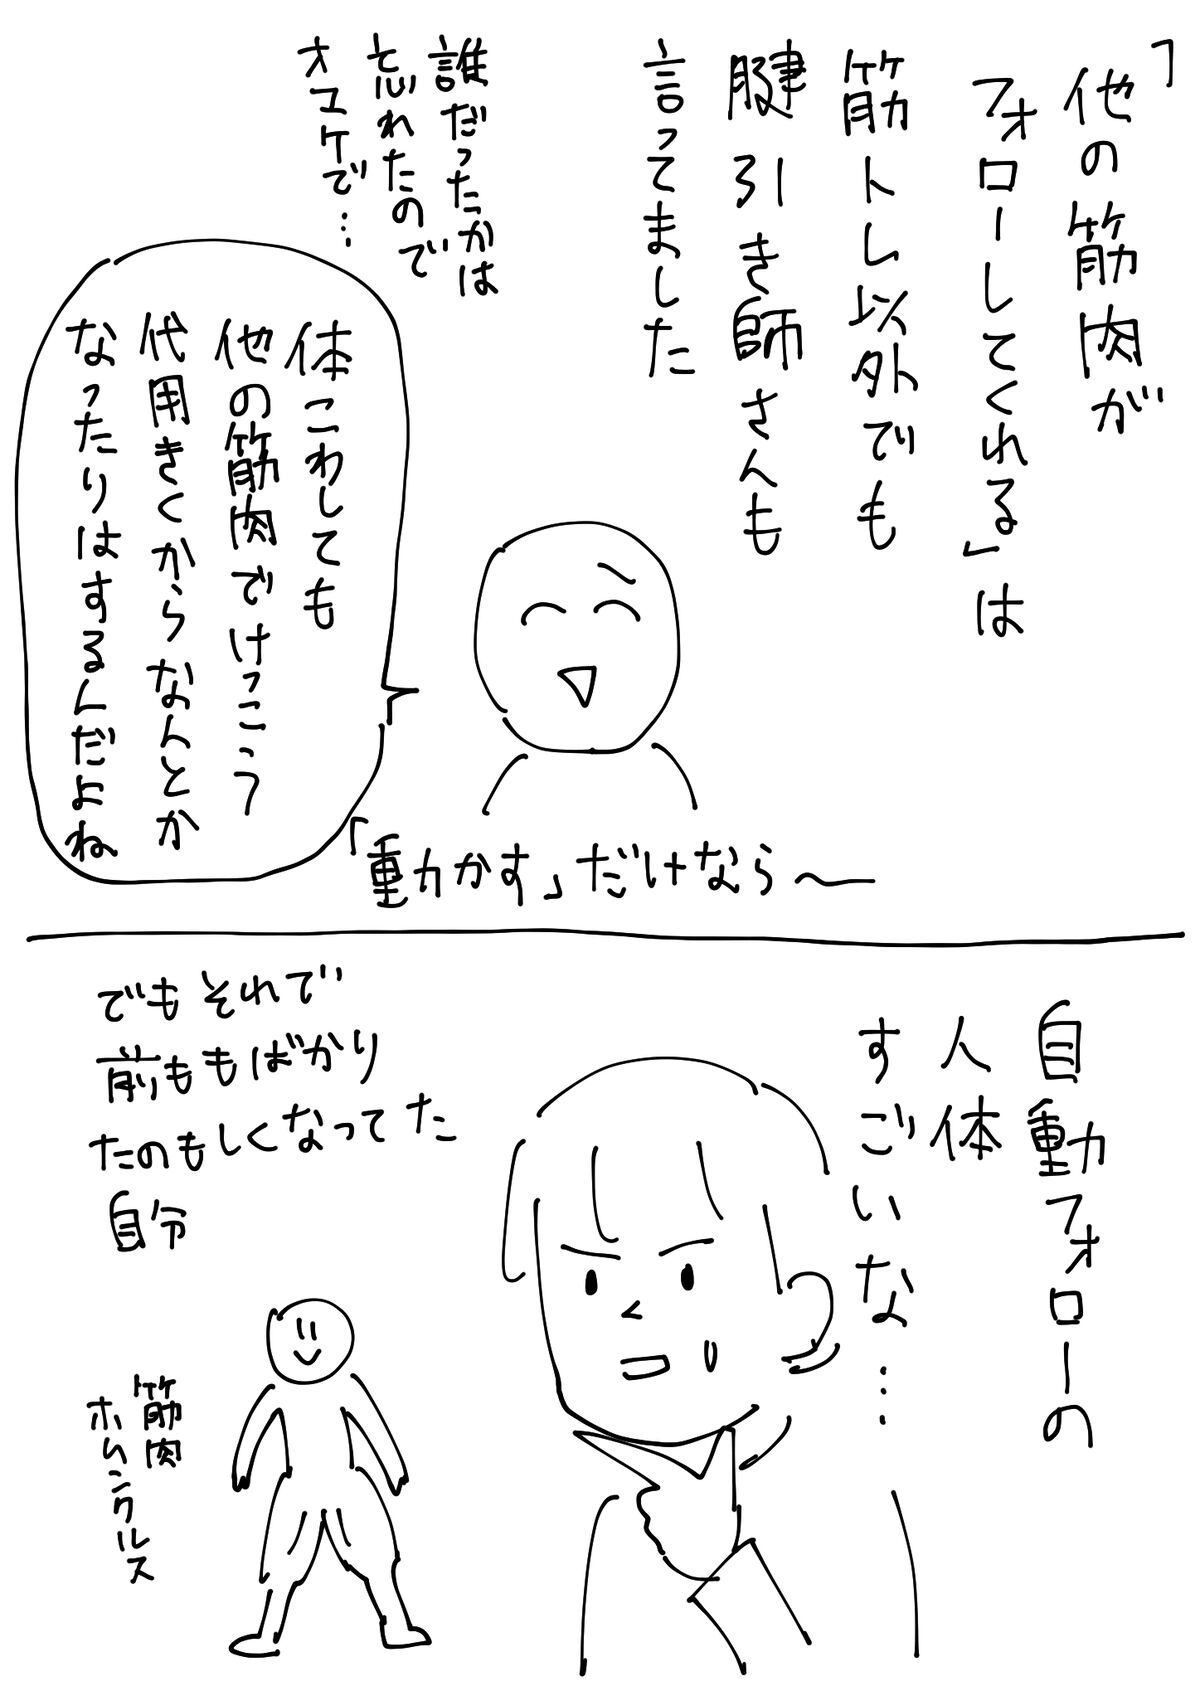 「他の筋肉が
フォローしてくれる」は
筋トレ以外でも
腱引き師さんも
言ってました
誰だったかは
忘れたので
オマケで…
体こわしても
他の筋肉でけっこう
代用きくからなんとか
なったりはするんだよね
「動かす」だけなら〜
自動フォローの
人体
すごいな…
でもそれで
前ももばかり
たのもしくなってた
自分
筋肉
ホムンクルス